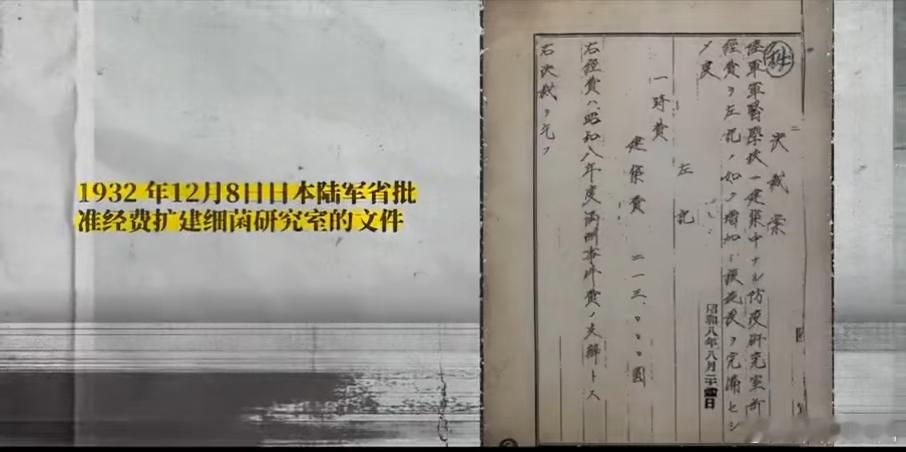 1932年12月8日日本陆军省批
准经费扩建细菌研究室的文件
決裁案
陸軍軍醫學校ニ建築中ナル防疫研究室所
經費ヲ左記ノ如ク増加シ設施ヲ完備セシ
メ度
左記
一時費
建築費 二一三、〇〇〇圓
右経費ハ昭和八年度満洲事件費ノ支辦トス
右決裁ヲ乞フ
昭和八年八月二十四日